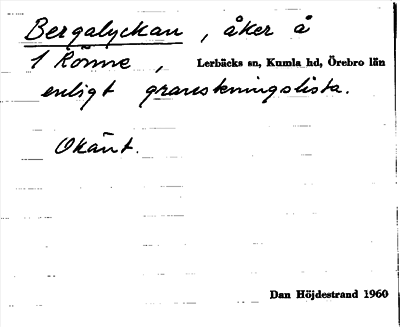 Bergalyckan, åker å
1 Rönne, Lerbäcks sn, Kumla hd, Örebro län
enligt granskningslista.
Okänt.
Dan Höjdestrand 1960